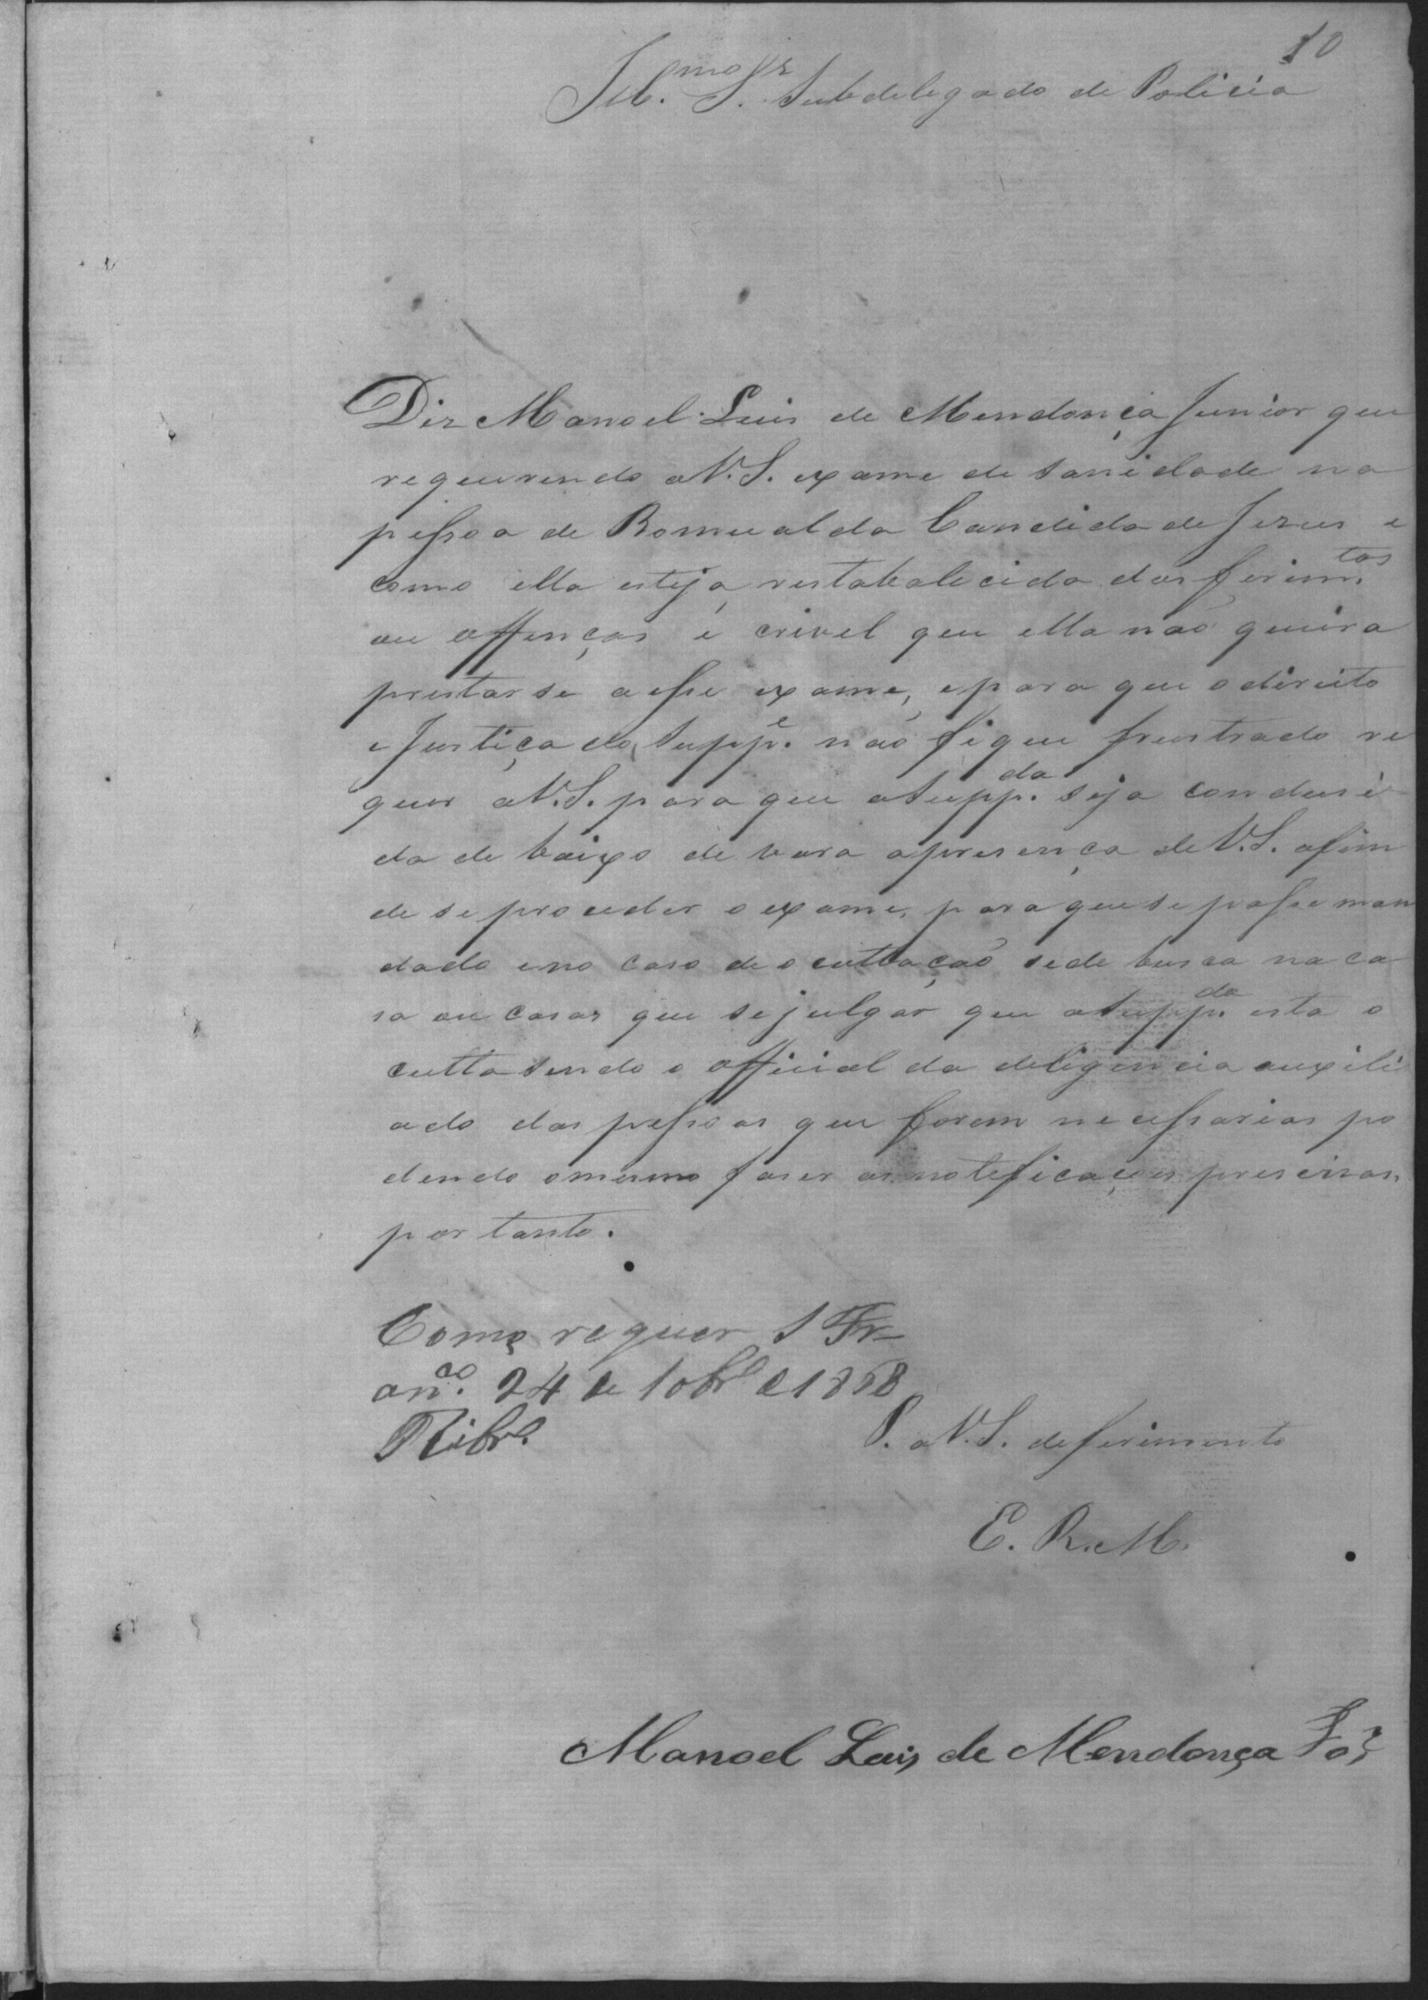 10
Ill.mo Sr. Subdelegado de Policia
Diz Manoel Luis de Mendonça Junior que
requerendo a V.S. exame de sanidade na
pessoa de Romualda Candida de Jezus e
como ella esteja restabalecida dos ferim.tos
ou offenças é crivel que ella não queira
prestar se a esse exame, e para que o direito
e Justiça do Supp.e não fique frustrado re
quer a V.S. para que a Supp.da seja condusi
da de baixo de vara a presença de V.S. afim
de se proceder o exame, para que se passe man
dado e no caso de occultação se de busca na ca
sa ou casas que se julgar que a Supp.da esta o
culta sendo o official da deligencia auxili
ado das pessoas que forem necessarias po
dendo o mesmo faser as notificações prescisas,
por tanto.
Como requer S Fr
an.co 24 de 10br.o de 1868
Ribr.o
P. a V.S. deferimento
E. R. M.
Manoel Luis de Mendonça